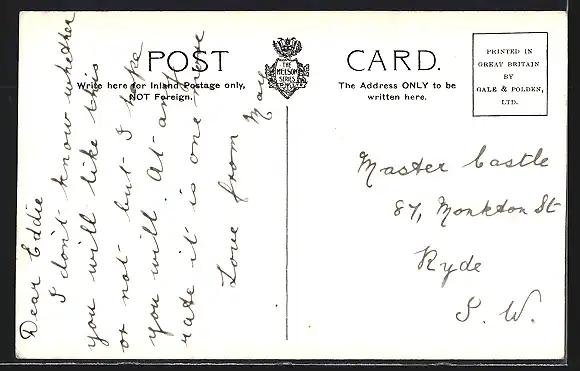 POST CARD.
THE
NELSON
SERIES
Write here for Inland Postage only,
NOT Foreign.
The Address ONLY to be
written here.
PRINTED IN
GREAT BRITAIN
BY
GALE & POLDEN,
LTD.
Dear Eddie
I don't know whether
you will like this
or not but I hope
you will. At any
rate it is one more
Love from
May
Master Castle
87, Monkton St
Ryde
I. W.